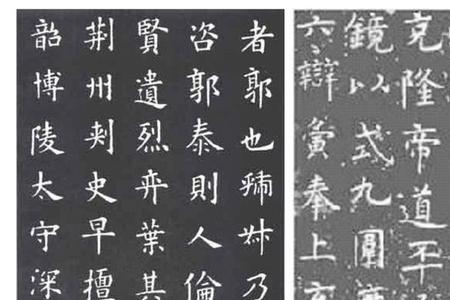 者郭也叔乃
咨郭泰則人倫
賢遺烈弈葉其
荊州刺史早擅
韶博陵太守深
克隆帝道
鏡以式九圍
六辯寅奉上玄